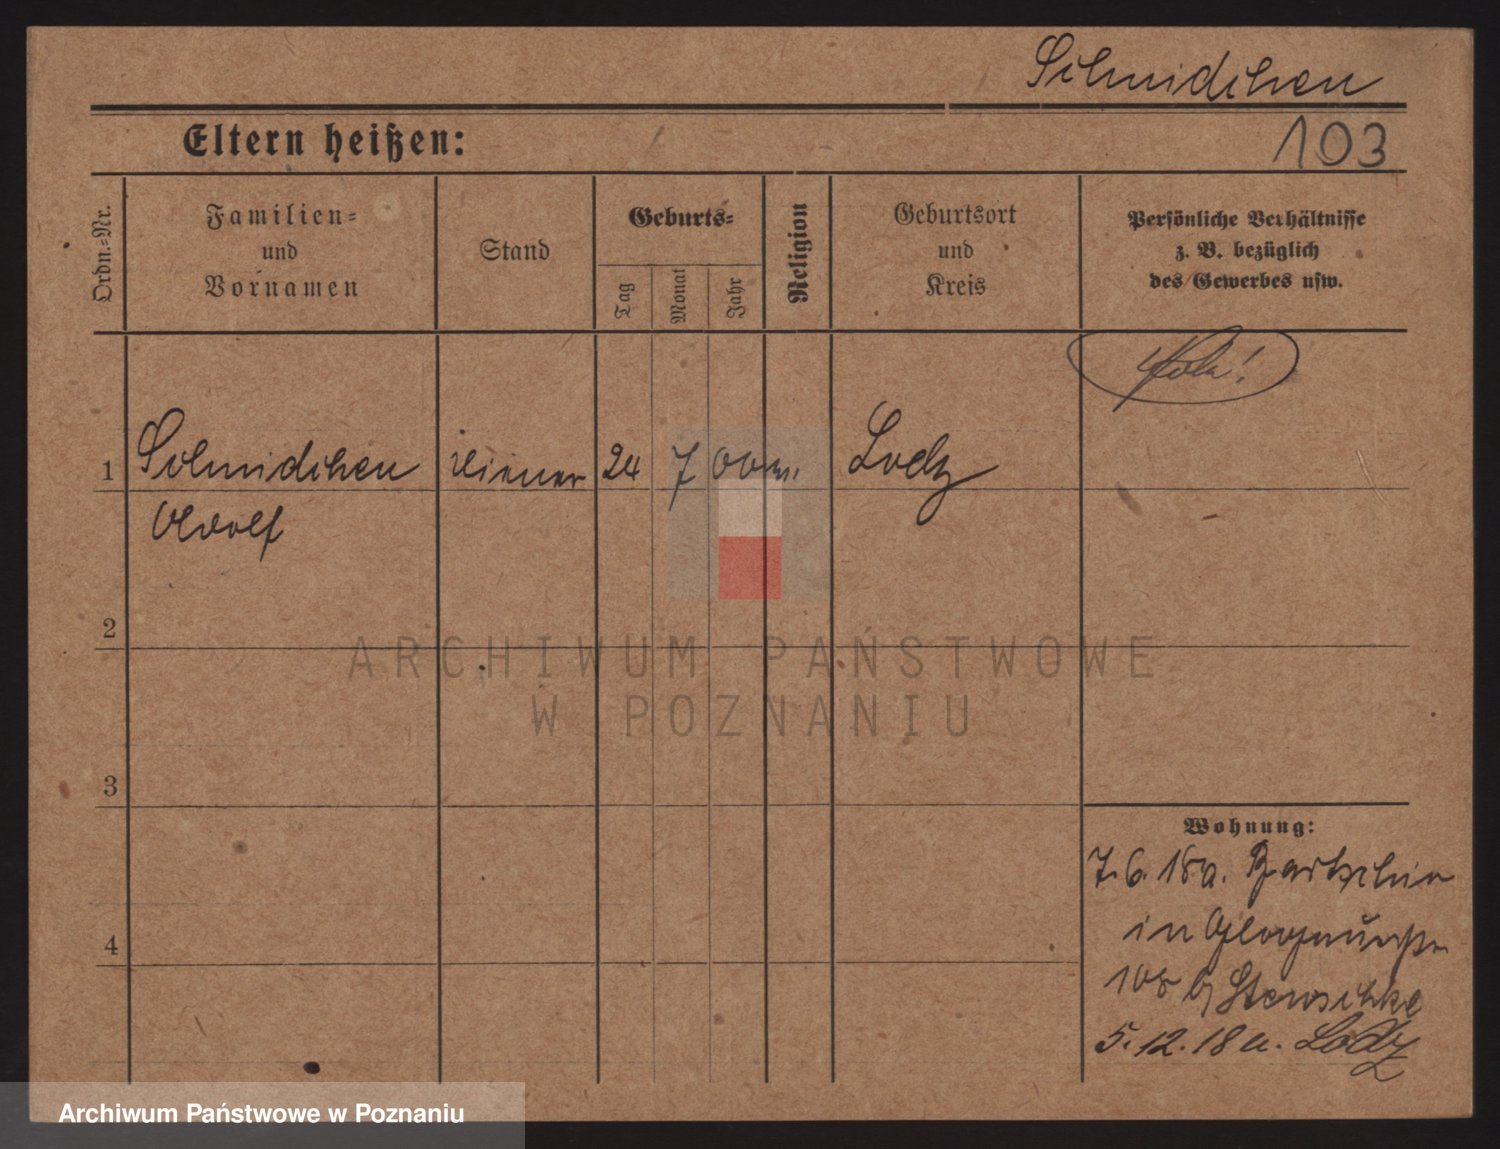 Schmidchen
Eltern heißen:
103
Ordn.-Nr.
Familien-
und
Vornamen
Stand
Geburts-
Tag
Monat
Jahr
Religion
Geburtsort
und
Kreis
Persönliche Verhältnisse
z. B. bezüglich
des Gewerbes usw.
Pole!
1
Schmidchen
Diener
24
7
00
Lodz
Adolf
2
ARCHIWUM PAŃSTWOWE
W POZNANIU
3
Wohnung:
7.6.18 a.
in Glogauerstr
108 b/
4
5.12.18 a. Lodz
Archiwum Państwowe w Poznaniu